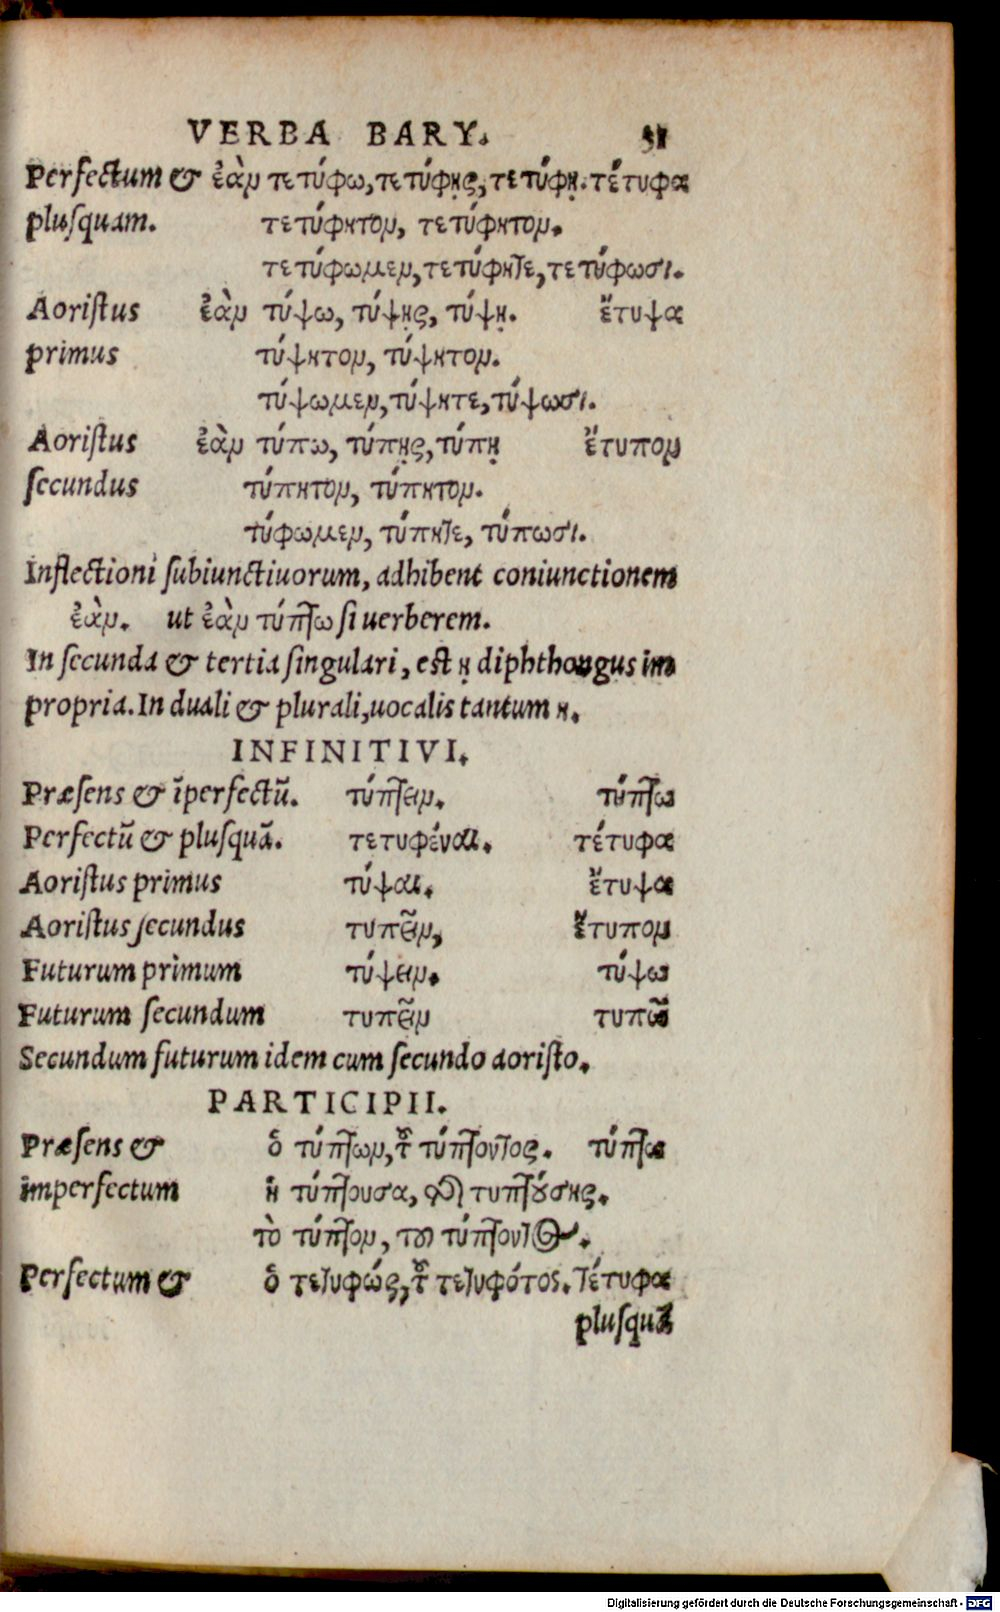 VERBA BARY. 51
Perfectum & ἐὰν τετύφω, τετύφῃς, τετύφῃ. τέτυφα
plusquam. τετύφητον, τετύφητον.
τετύφωμεν, τετύφητε, τετύφωσι.
Aoristus ἐὰν τύψω, τύψῃς, τύψῃ. ἔτυψα
primus τύψητον, τύψητον.
τύψωμεν, τύψητε, τύψωσι.
Aoristus ἐὰν τύπω, τύπῃς, τύπῃ ἔτυπον
secundus τύπητον, τύπητον.
τύφωμεν, τύπητε, τύπωσι.
Inflectioni subiunctiuorum, adhibent coniunctionem
ἐὰν. ut ἐὰν τύπτω si uerberem.
In secunda & tertia singulari, est ῃ diphthongus im
propria. In duali & plurali, uocalis tantum η.
INFINITIVI.
Præsens & īperfectū. τύπτειν. τύπτω
Perfectū & plusquā. τετυφέναι. τέτυφα
Aoristus primus τύψαι. ἔτυψα
Aoristus secundus τυπεῖν, ἔτυπον
Futurum primum τύψειν. τύψω
Futurum secundum τυπεῖν τυπῶ
Secundum futurum idem cum secundo aoristo.
PARTICIPII.
Præsens & ὁ τύπτων, τοῦ τύπτοντος. τύπτω
imperfectum ἡ τύπτουσα, τῆς τυπτούσης.
τὸ τύπτον, τοῦ τύπτοντος.
Perfectum & ὁ τετυφώς, τοῦ τετυφότος. τέτυφα
plusquā
Digitalisierung gefördert durch die Deutsche Forschungsgemeinschaft - DFG